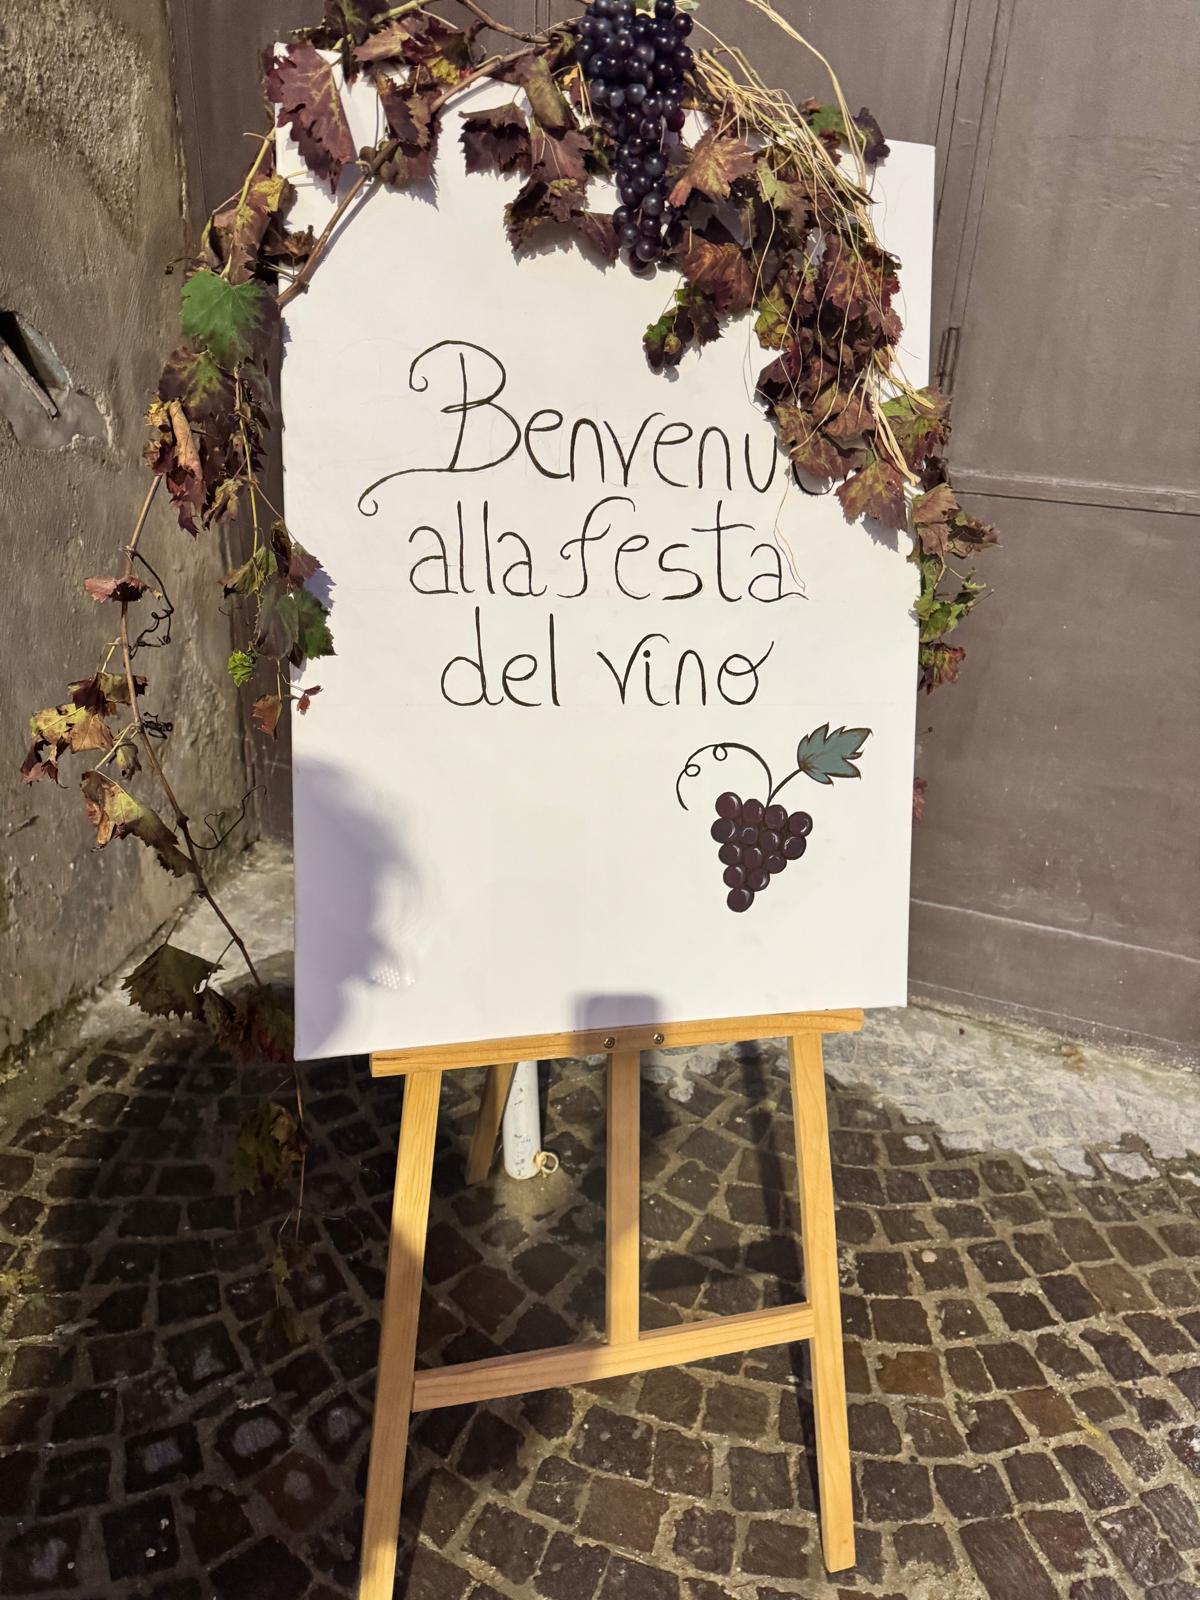 Benvenu
alla festa
del vino